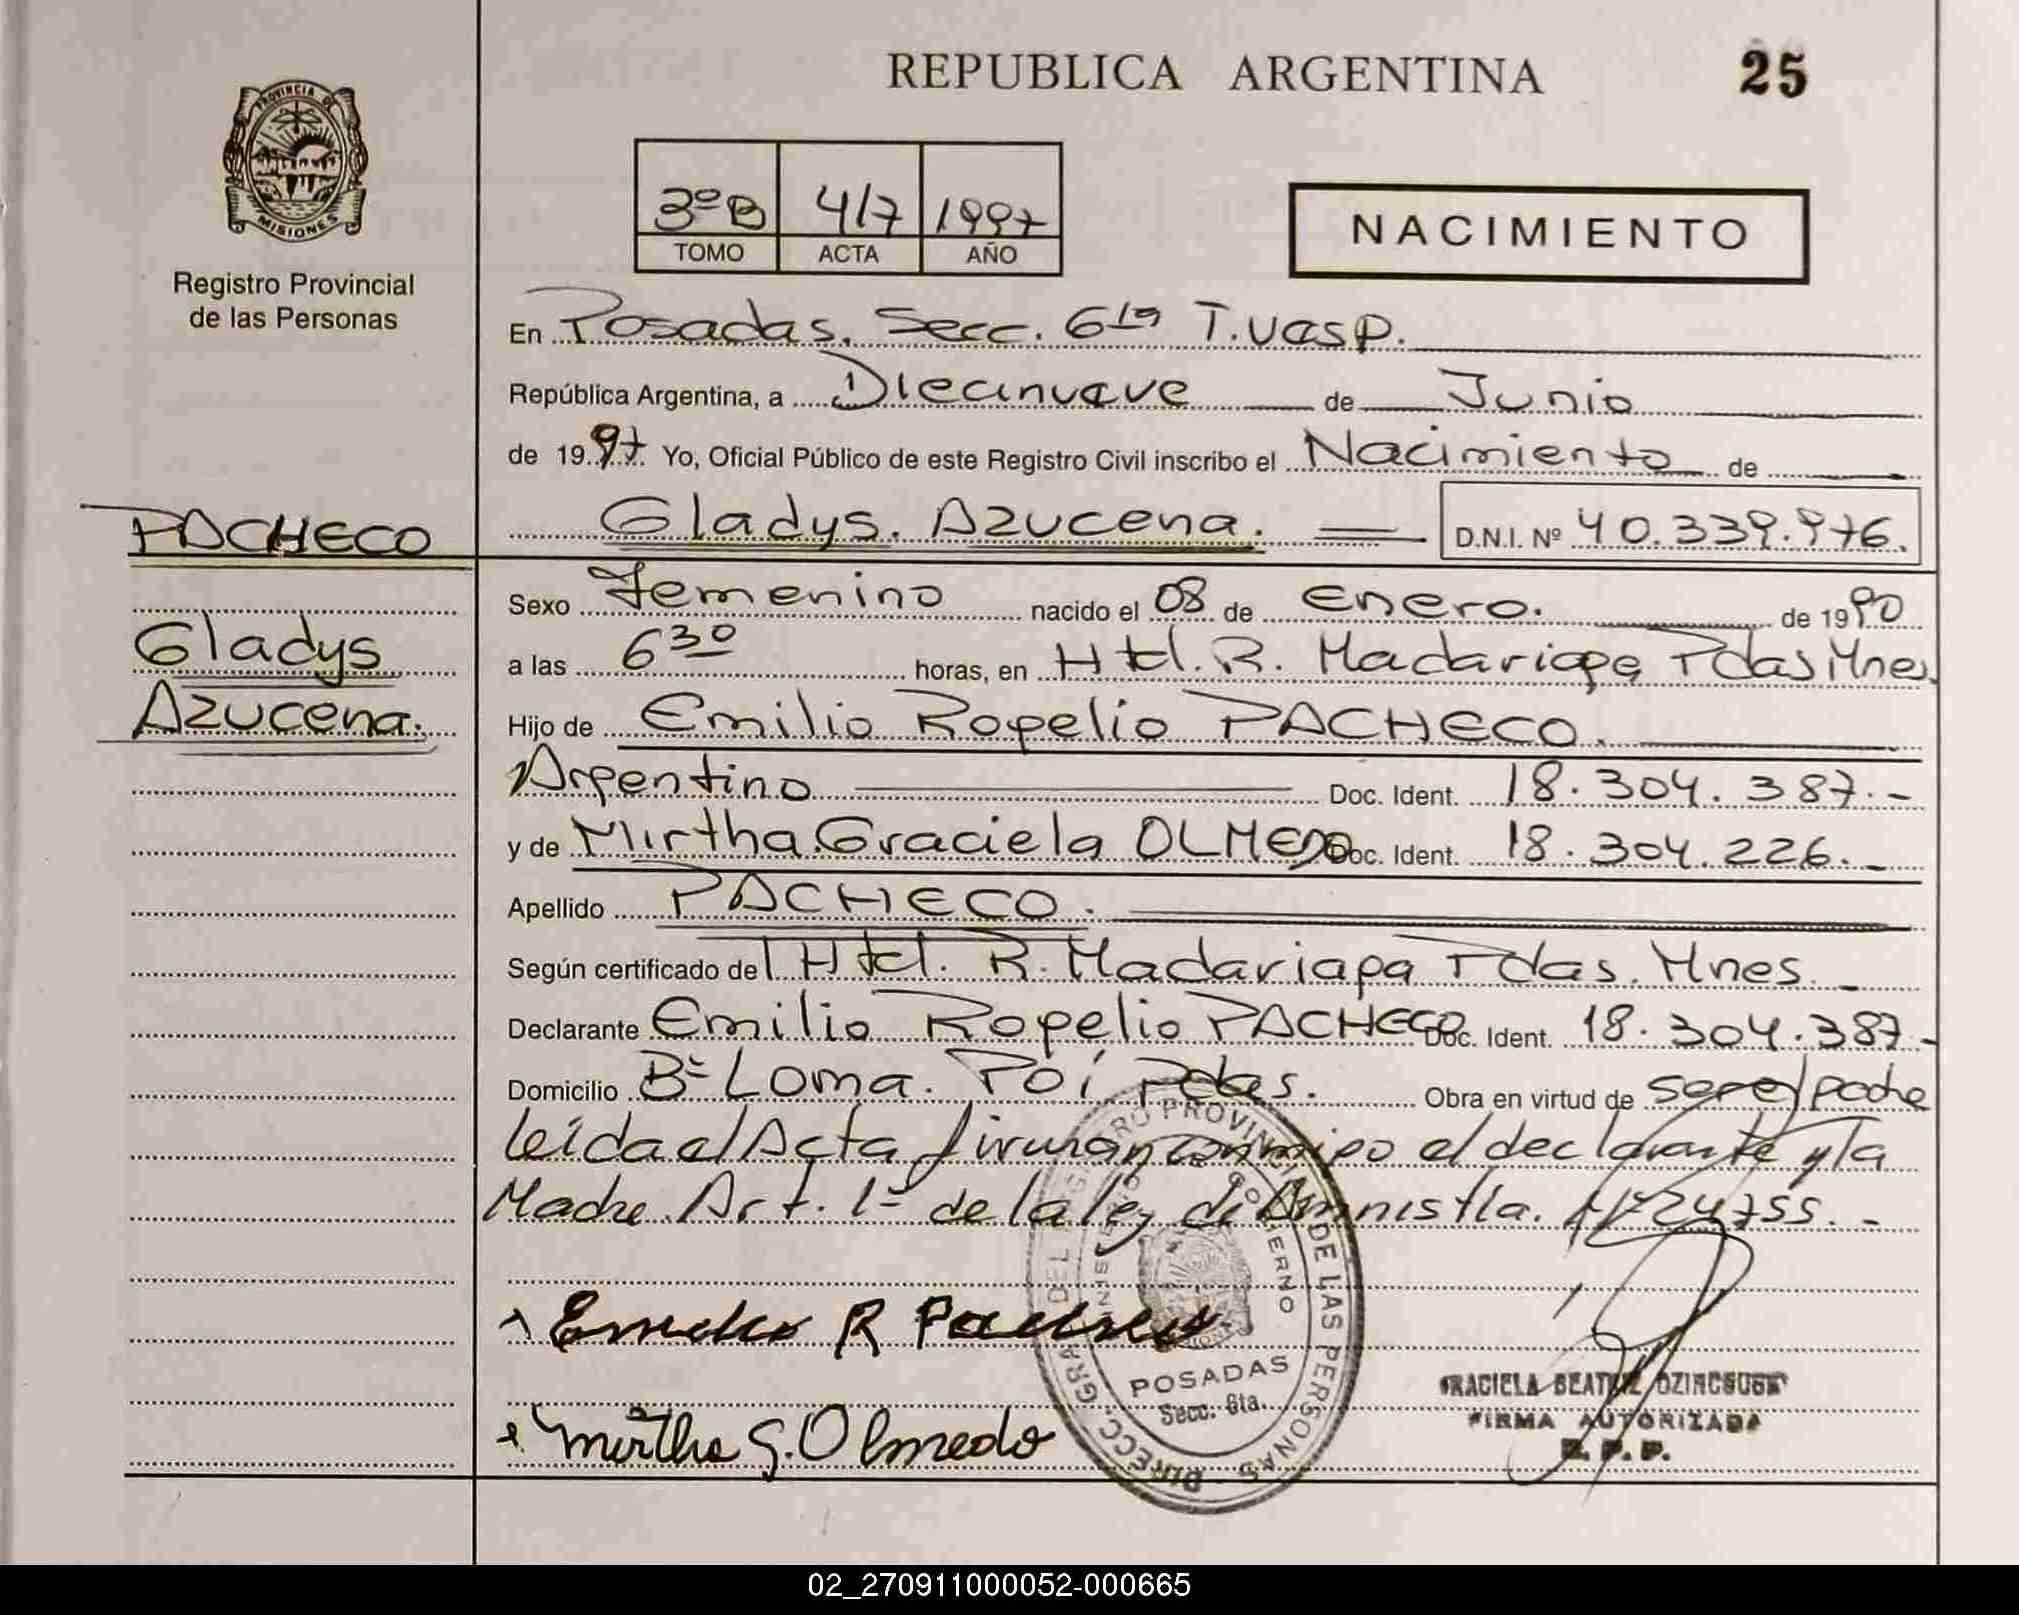 REPUBLICA ARGENTINA
25
PROVINCIA DE
MISIONES
Registro Provincial
de las Personas
3º B 4/7 1997
TOMO ACTA AÑO
NACIMIENTO
En Posadas. Secc. 6ta T.
República Argentina, a Diecinueve de Junio
de 1997 Yo, Oficial Público de este Registro Civil inscribo el Nacimiento de
PACHECO
Gladys. Azucena. D.N.I. Nº 40.339.976.
Gladys
Azucena.
Sexo Femenino nacido el 08 de Enero. de 1990
a las 6 30 horas, en Htal. R. Madariaga Pdas Mnes.
Hijo de Emilio Rogelio PACHECO.
Argentino Doc. Ident. 18.304.387.-
y de Mirtha Graciela OLMEDO Doc. Ident. 18.304.226.-
Apellido PACHECO.
Según certificado del Htal. R. Madariaga Pdas. Mnes.
Declarante Emilio Rogelio PACHECO Doc. Ident. 18.304.387.-
Domicilio Bº Loma. Poí Pdas. Obra en virtud de padre
leída el Acta firman conmigo el declarante y la
Madre. Art. 1º de la ley de Amnistía. Nº 24755.-
R Pacheco
Mirtha G. Olmedo
DIRECC. GRAL DEL REGISTRO PROVINCIAL DE LAS PERSONAS
GOBIERNO
POSADAS
Secc. 6ta.
GRACIELA BEATRIZ
FIRMA AUTORIZADA
R.P.P.
02_270911000052-000665